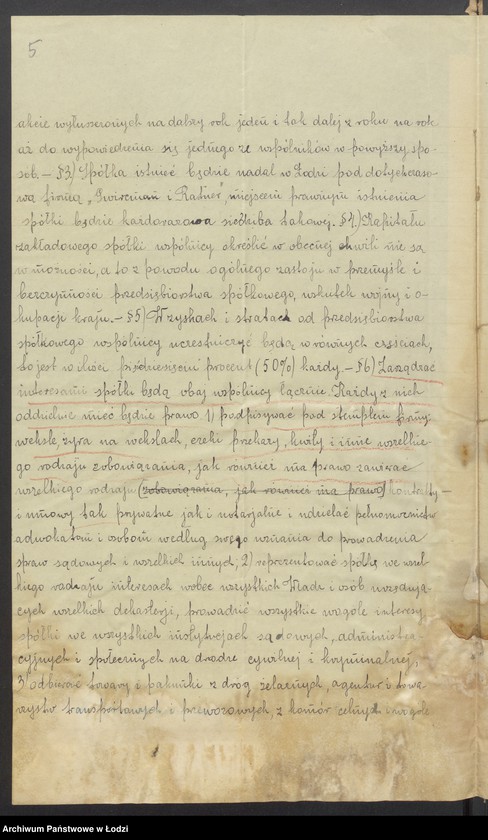 5
akcie wyłuszczonych na dalszy rok jeden i tak dalej z roku na rok
aż do wypowiedzenia się jednego ze wspólników w powyższy spo-
sób. – §3) Spółka istnieć będzie nadal w Łodzi pod dotychczaso-
wą firmą „ i Ratner" miejscem prawnym istnienia
spółki będzie każdorazowa siedziba takowej. §4.) Kapitału
zakładowego spółki wspólnicy określić w obecnej chwili nie są
w możności, a to z powodu ogólnego zastoju w przemyśle i
bezczynności przedsiębiorstwa spółkowego, wskutek wojny i o-
kupacji kraju. – §5) W zyskach i stratach od przedsiębiorstwa
spółkowego wspólnicy uczestniczyć będą w równych częściach,
to jest w ilości pięćdziesięciu procent (50%) każdy. – §6) Zarządzać
interesami spółki będą obaj wspólnicy łącznie. Każdy z nich
oddzielnie mieć będzie prawo 1) podpisywać pod stemplem firmy
weksle, żyra na wekslach, czeki przekazy, kwity i inne wszelkie-
go rodzaju zobowiązania, jak również ma prawo zawierać
wszelkiego rodzaju (zobowiązania, jak również ma prawo) kontakty –
i umowy tak prywatne jak i notarjalne i udzielać pełnomocnictw
adwokatom i osobom według swego uznania do prowadzenia
spraw sądowych i wszelkich innych, 2) reprezentować spółkę we wszel-
kiego rodzaju interesach wobec wszystkich Władz i osób urzędują-
cych wszelkich dekasterji, prowadzić wszystkie wogóle interesy
spółki we wszystkich instytucjach sądowych, administra-
cyjnych i społecznych na drodze cywilnej i kryminalnej,
3) odbierać towary i pakunki z dróg żelaznych, agentur i towa-
rzystw transportowych i przewozowych, z komór celnych i wogóle
Archiwum Państwowe w Łodzi